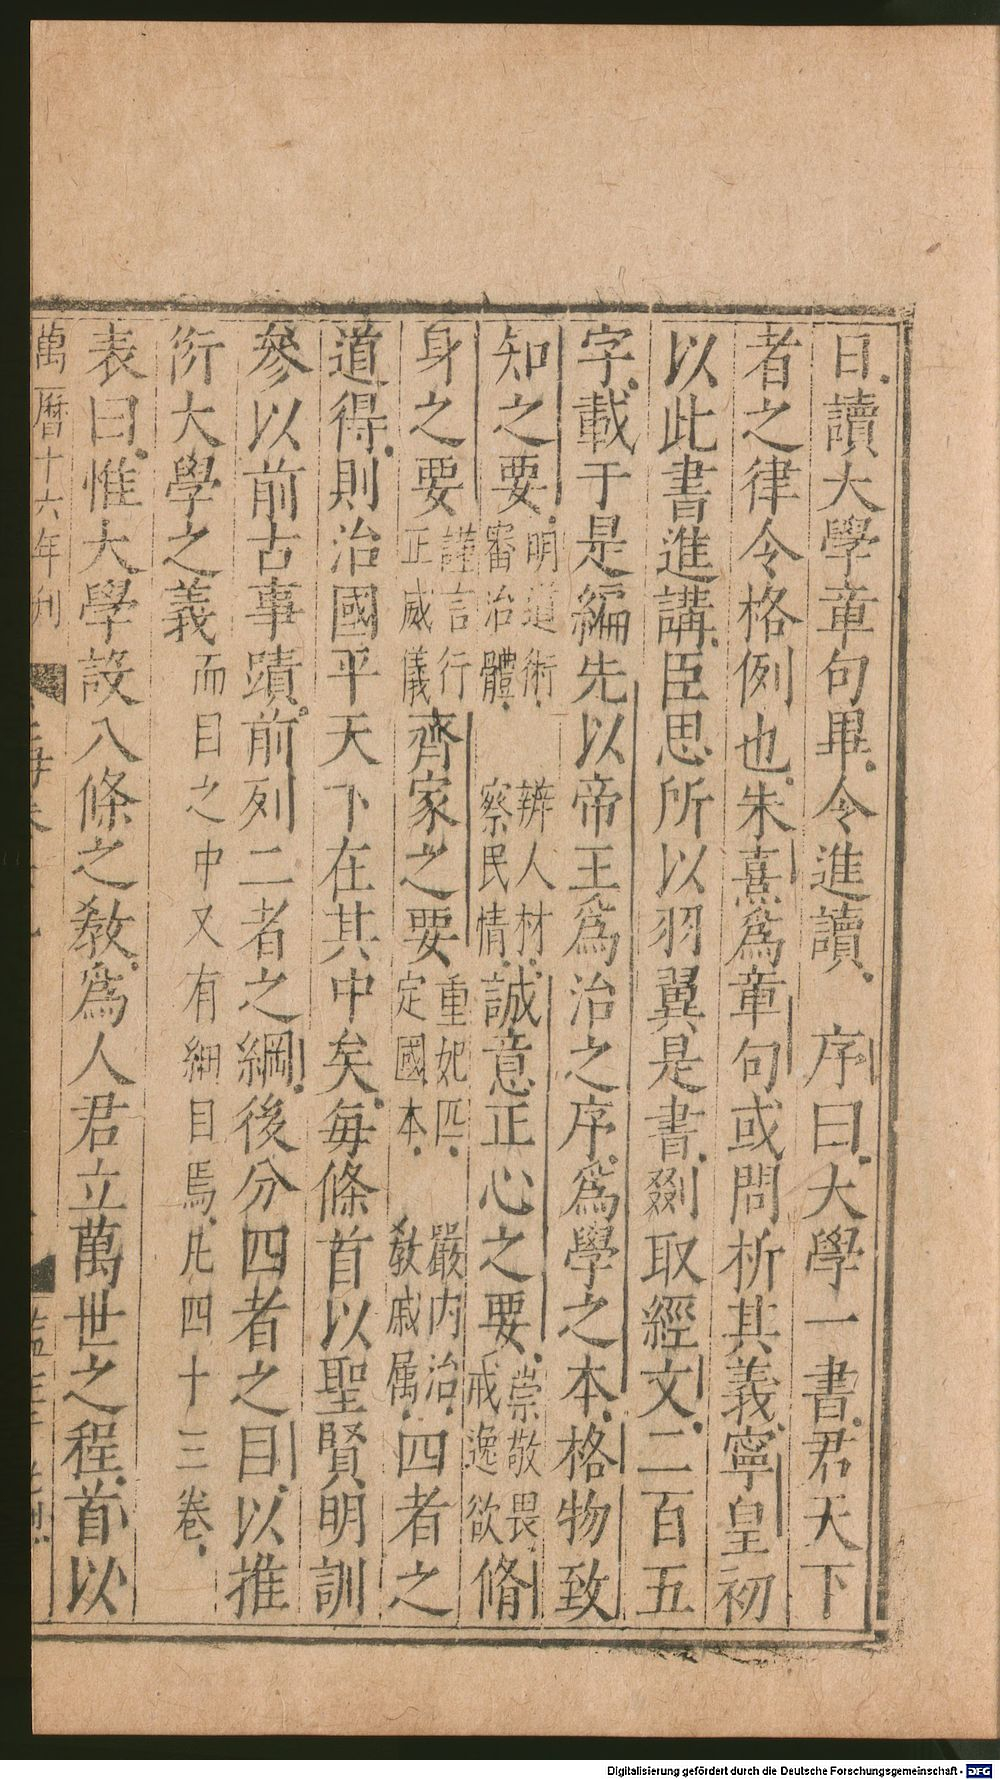 日讀大學章句畢令進讀　序曰大學一書君天下
者之律令格例也朱熹爲章句或問析其義寧皇初
以此書進講臣思所以羽翼是書剟取經文二百五
字載于是編先以帝王爲治之序爲學之本格物致
知之要明道術辨人材審治體察民情誠意正心之要崇敬畏戒逸欲脩
身之要謹言行正威儀齊家之要重妃匹嚴内治定國本敎戚属四者之
道得則治國平天下在其中矣每條首以聖賢明訓
參以前古事蹟前列二者之綱後分四者之目以推
衍大學之義而目之中又有細目焉凡四十三卷
表曰惟大學設八條之敎爲人君立萬世之程首以
萬曆十六年刊
Digitalisierung gefördert durch die Deutsche Forschungsgemeinschaft - DFG